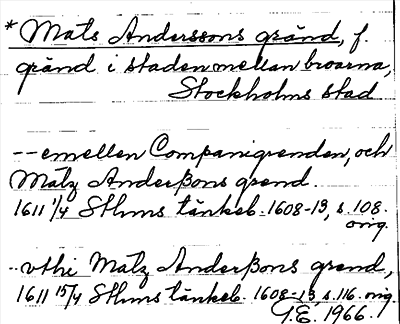 * Mats Anderssons gränd, f.
gränd i staden mellan broarna,
Stockholms stad
-- emellen Companigrenden, och
Matz Anderßons grend.
1611 1/4 Sthms tänkeb. 1608-13, s. 108.
orig.
-- vthi Matz Anderßons grend,
1611 15/4 Sthms tänkeb. 1608-13, s. 116. orig.
G.E. 1966.